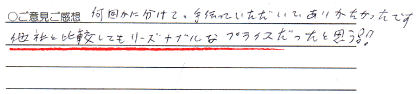 ○ご意見ご感想 何回かに分けて、手伝っていただいて、ありがたかったです
他社と比較してもリーズナブルなプライスだったと思う!!